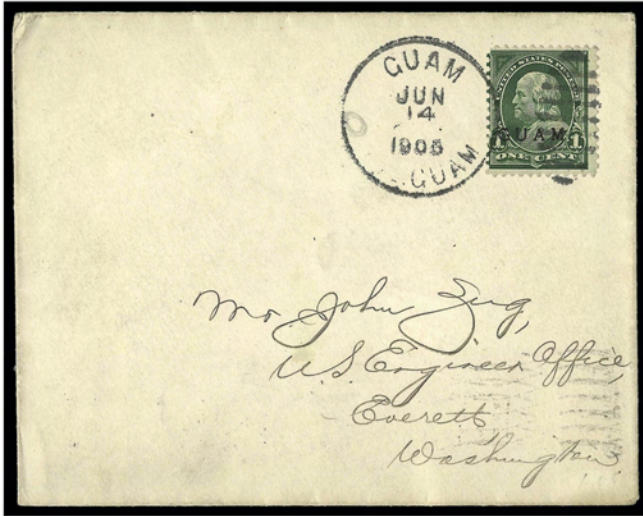 GUAM
JUN
14
1905
GUAM
UNITED STATES POSTAGE
GUAM
1 ONE CENT 1
Mr John Zug,
U.S. Engineer Office,
Everett,
Washington.